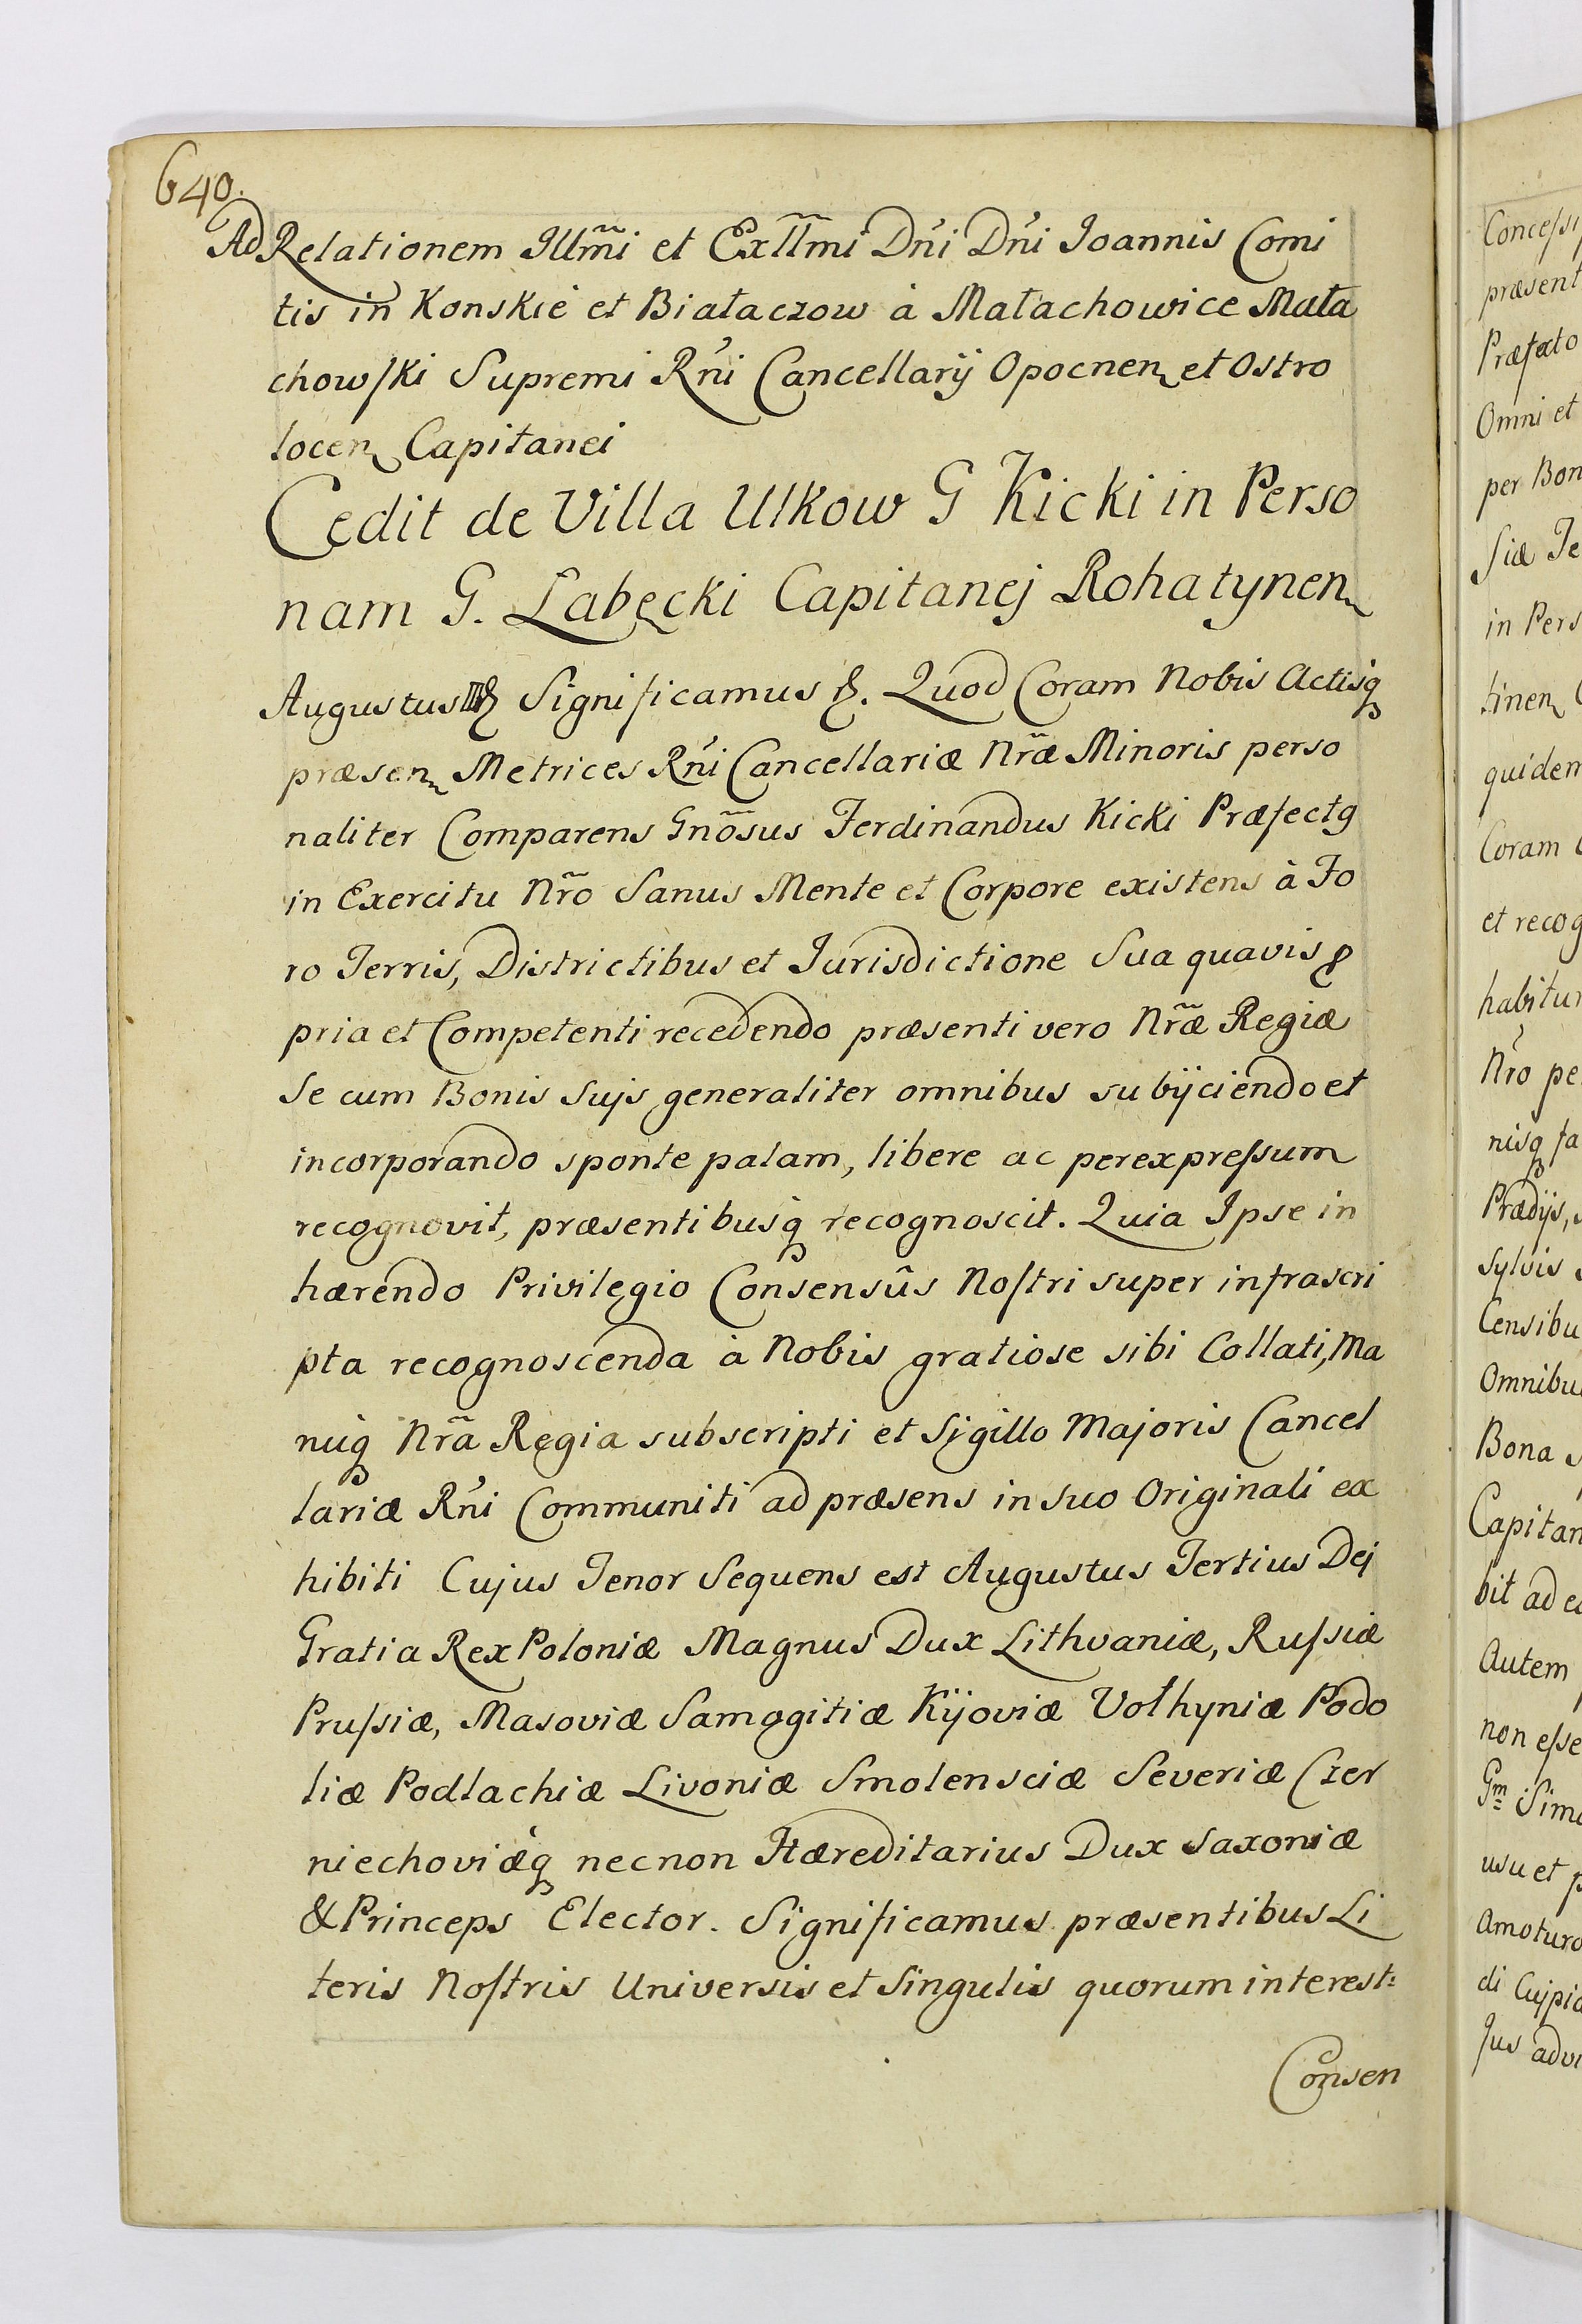 640.
Ad Relationem Jllm̃i et Exllm̃i Dn̍i Dn̍i Joannis Comi
tis in Konskie et Białaczow à Małachowice Mała
chowſki Supremi Rn̍i Cancellarij Opocnen et Ostro
locen Capitanei
Cedit de Villa Ulkow G Kicki in Perso
nam G. Łabęcki Capitanej Rohatynen
Augustus III & Significamus &. Quod Coram Nobis Actisq
præsen Metrices Rn̍i Cancellariæ Nr̃æ Minoris perso
naliter Comparens Gnõsus Ferdinandus Kicki Præfectg
in Exercitu Nr̃o Sanus Mente et Corpore existens à Fo
ro Terris, Districtibus et Jurisdictione Sua quavis ꝓ
pria et Competenti recedendo præsenti vero Nr̃æ Regiæ
Se cum Bonis Sujs generaliter omnibus subijciendo et
incorporando sponte palam, libere ac perexpreſsum
recognovit, præsentibusq̀ recognoscit. Quia Ipse in
hærendo Privilegio Consensûs Noſtri super infrascri
pta recognoscenda à Nobis gratiose sibi Collati, Ma
nuq̀ Nr̃a Regia subscripti et Sigillo Majoris Cancel
lariæ Rn̍i Communiti ad præsens in suo Originali ex
hibiti Cujus Tenor Sequens est Augustus Tertius Dej
Gratia Rex Poloniæ Magnus Dux Lithvaniæ, Ruſsiæ
Pruſsiæ, Masoviæ Samogitiæ Kijoviæ Vołhyniæ Podo
liæ Podlachiæ Livoniæ Smolensciæ Severiæ Czer
niechoviæq̀ necnon Hæreditarius Dux Saxoniæ
& Princeps Elector. Significamus præsentibus Li
teris Noſtris Universis et Singulis quorum interest:
Consen
præsent
Præfecto
Omni et
per Bon
siæ Te
in Pers
tinen
quidem
Coram
et recog
habitu
Nr̍o pe
nisq fa
Prædijs,
Sylvis
Censibu
Omnibu
Bona
Capitan
bit ad
Autem
non eſse
Gm Sim
usu et
Amoturo
di Cujpia
Jus advi